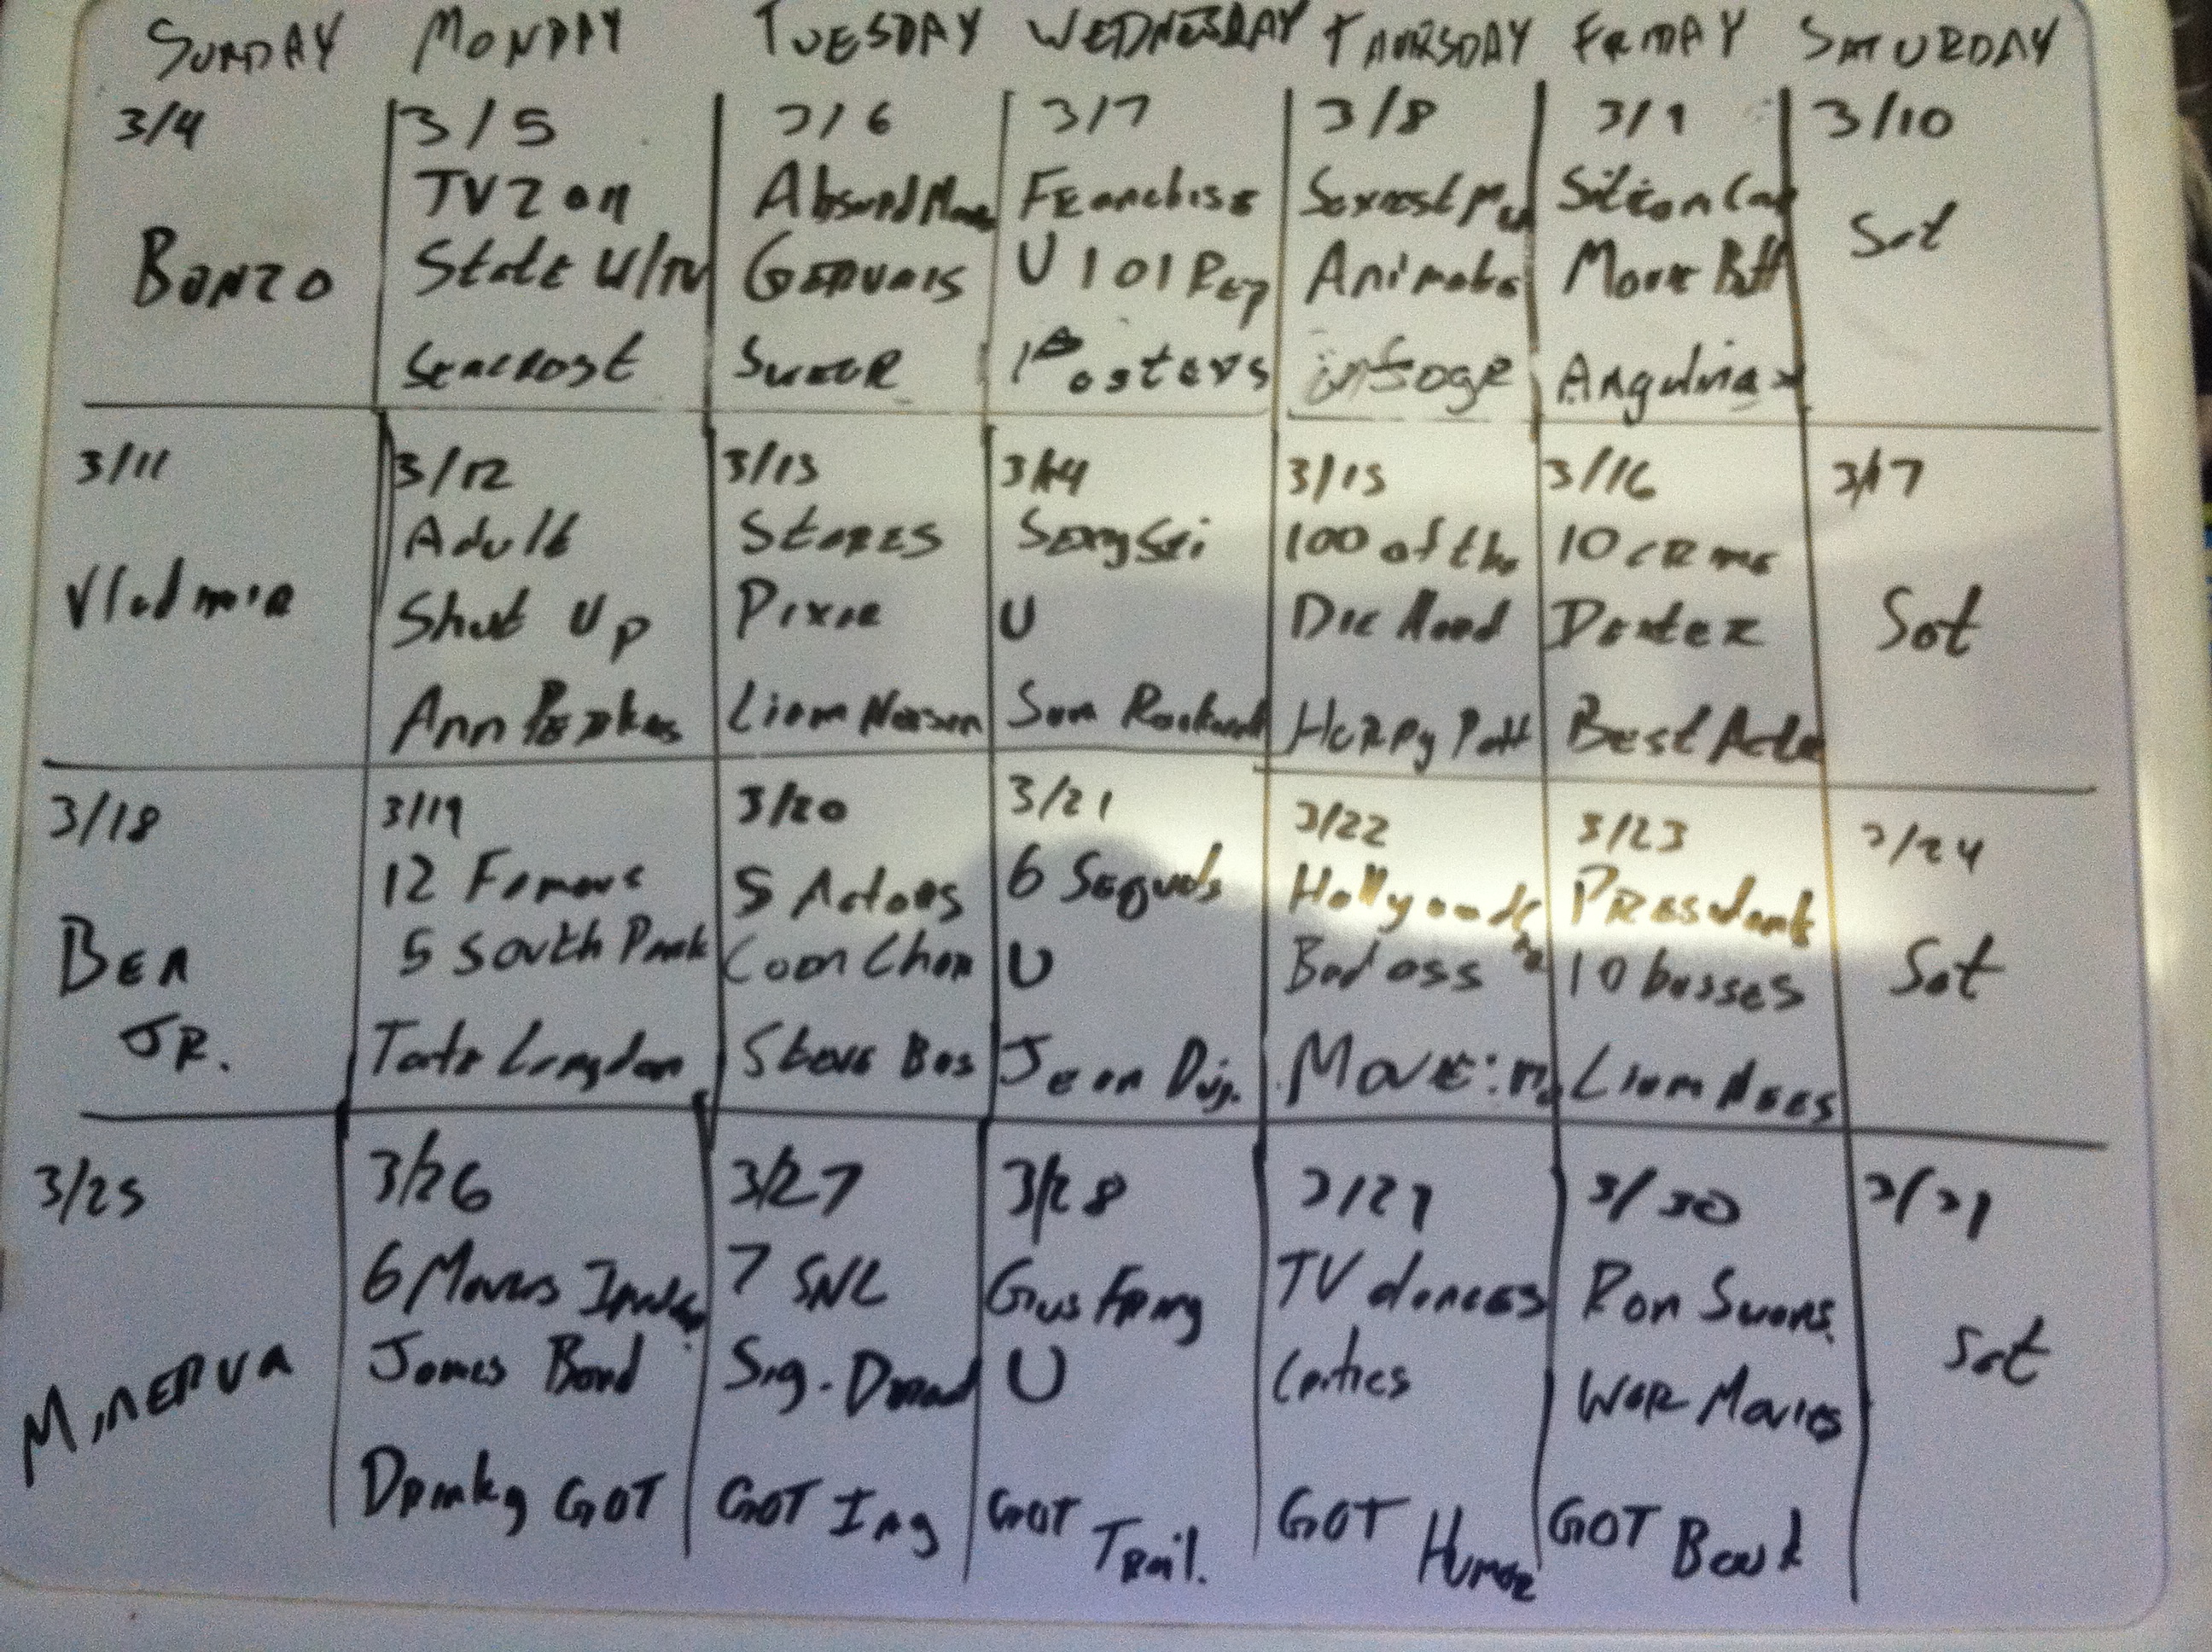 SUNDAY MONDAY TUESDAY WEDNESDAY THURSDAY FRIDAY SATURDAY
3/4 3/5 3/6 3/7 3/8 3/9 3/10
TV 2 on Absurd Franchise Sexiest
Bonzo State U/TV Gervais U 101 Rep Animate Movie Butt Sat
Seacrest 1 Posters Angelina
3/11 3/12 3/13 3/14 3/15 3/16 3/17
Adult Stores Sexy Sci 100 of the 10 crme
Vladmir Shut Up Pixar U Die Hard Dexter Sat
Ann Perkins Liam Neeson Sam Rockwell Harry Pott Best Acto
3/18 3/19 3/20 3/21 3/22 3/23 3/24
12 Famous 5 Actors 6 Sequels Presidents
Ben 5 South Park U Badass 10 bosses Sat
JR. Tate Langdon Steve Bus Jean Duj. Movie: Liam Nees
3/25 3/26 3/27 3/28 3/29 3/30 3/31
6 Movies 7 SNL Gus Fring TV dances Ron Swans.
Minerva James Bond Sig. U Critics War Movies Sat
GOT GOT GOT Trail. GOT Humor GOT